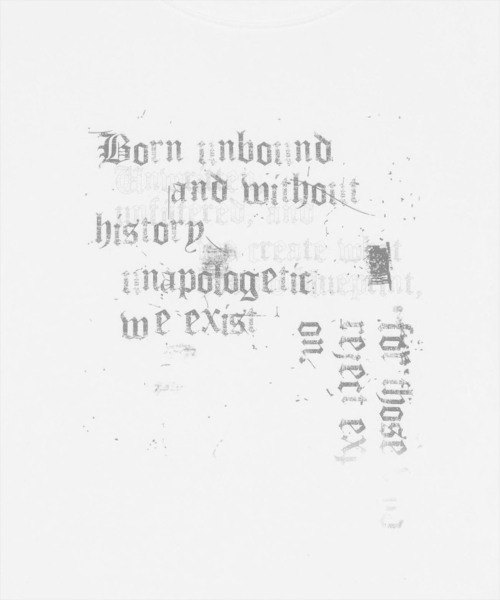 Born unbound
and without
history
unapologetic
we exist
unfiltered, and
create what
for those
reject ex
no